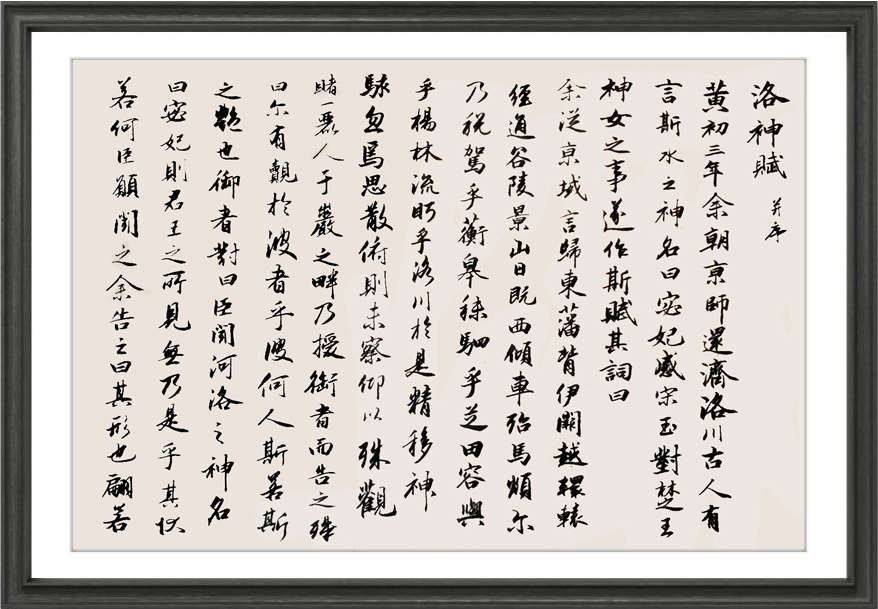 洛神賦 并序
黃初三年余朝京師還濟洛川古人有
言斯水之神名曰宓妃感宋玉對楚王
神女之事遂作斯賦其詞曰
余從京域言歸東藩背伊闕越轘轅
經通谷陵景山日既西傾車殆馬煩尔
乃稅駕乎蘅皋秣駟乎芝田容與
乎楊林流眄乎洛川於是精移神
駭忽焉思散俯則未察仰以殊觀
睹一麗人于巖之畔乃援御者而告之殊
曰尔有覿於彼者乎彼何人斯若斯
之艷也御者對曰臣聞河洛之神名
曰宓妃則君王之所見無乃是乎其狀
若何臣願聞之余告之曰其形也翩若